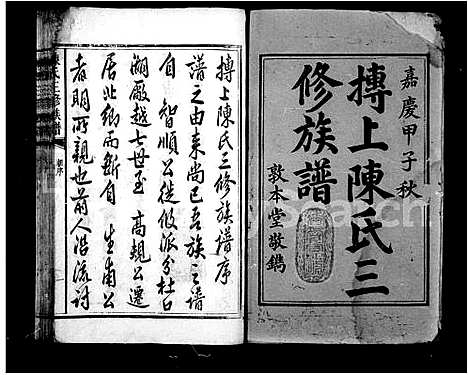 嘉慶甲子秋
摶上陳氏三
修族譜
敦本堂敬鐫
摶上陳氏三修族譜序
譜之由來尚已吾族之譜
自 智順公從攸派分杜口
嗣厥越七世至 高規公遷
居此鄉而斷自 生甫公
者明所親也前人沿流討
陳氏三修族譜